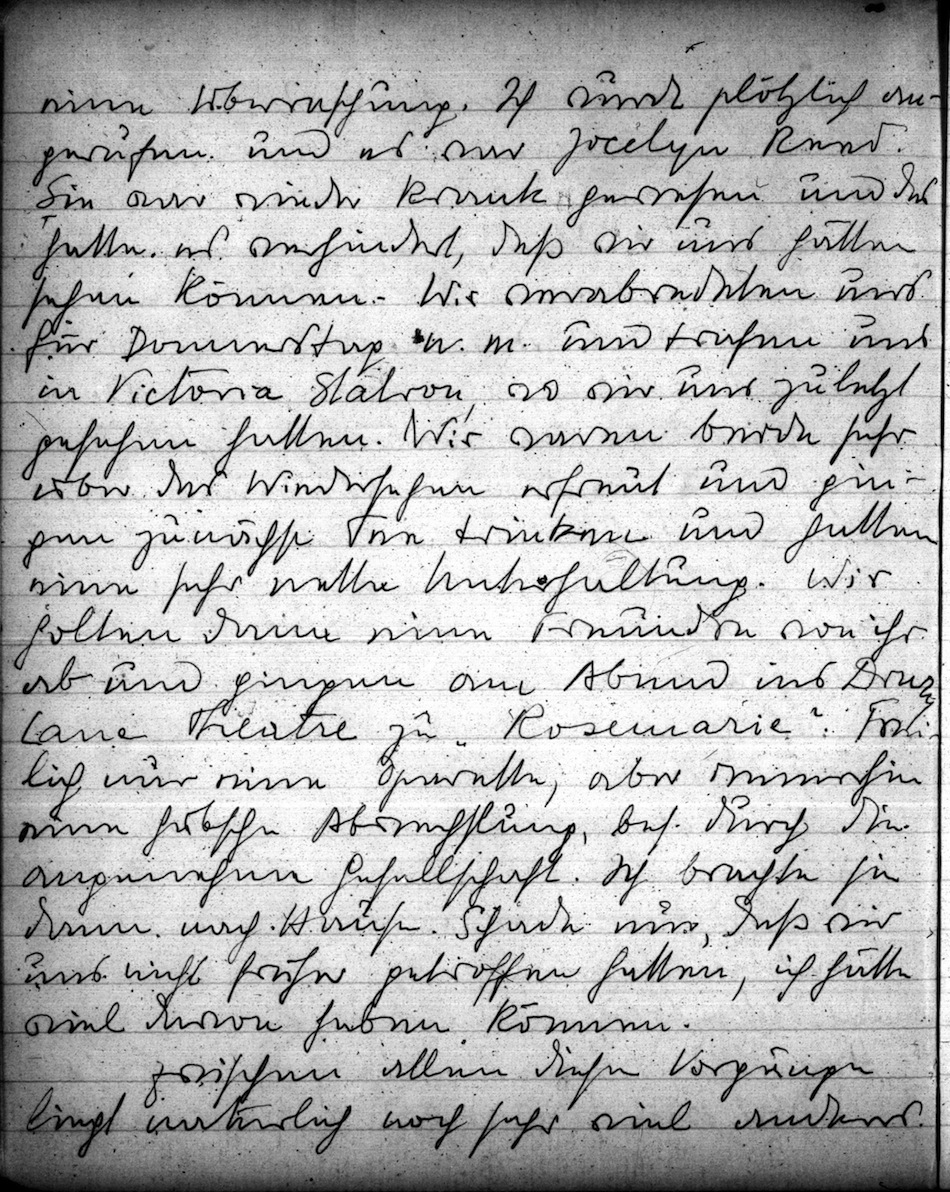 eine Überraschung. Ich wurde plötzlich an-
gerufen und es war Jocelyn Reed.
Sie war wieder krank gewesen und das
hatte es verhindert, daß wir uns hätten
sehen können. Wir verabredeten uns
für Donnerstag n. m. und trafen uns
in Victoria Station, wo wir uns zuletzt
gesehen hatten. Wir waren beide sehr
über das Wiedersehen erfreut und gin-
gen zunächst Tee trinken und hatten
eine sehr nette Unterhaltung. Wir
holten dann eine Freundin von ihr
ab und gingen am Abend ins Drury
Lane Theatre zu "Rosemarie". Frei-
lich nur eine Operette, aber immerhin
eine hübsche Abwechslung, bes. durch die
angenehme Gesellschaft. Ich brachte sie
dann nach Hause. Schade nur, daß wir
uns nicht früher getroffen hatten, ich hätte
viel davon haben können.
Zwischen allen diesen Vorgängen
liegt natürlich noch sehr viel anderes.